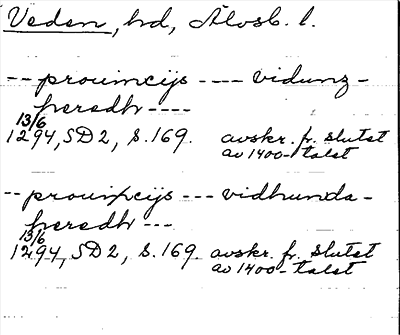 Veden, hd, Älvsb. l.
-- prouincijs ---- vidunz-
heredh ----
13/6
1294, SD 2, s. 169. avskr. fr. slutet
av 1400-talet
-- prouincijs --- vidhunda-
heredh ---
13/6
1294, SD 2, s. 169 avskr. fr. slutet
av 1400-talet